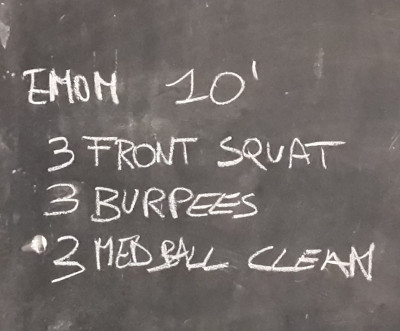 EMOM 10'
3 FRONT SQUAT
3 BURPEES
3 MED BALL CLEAN